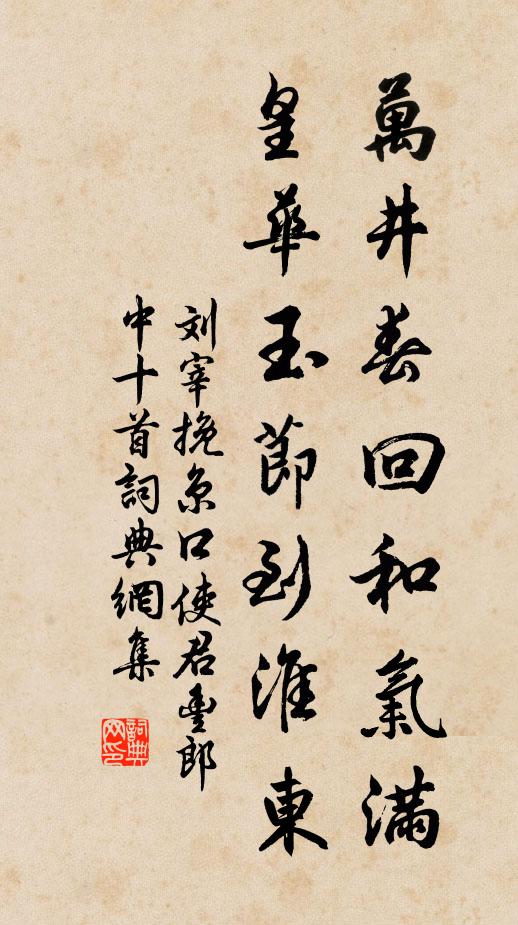 萬井春回和氣滿
皇華玉節到淮東
刘宰挽京口使君豐郎
中十首詞典網集
詞典
网印